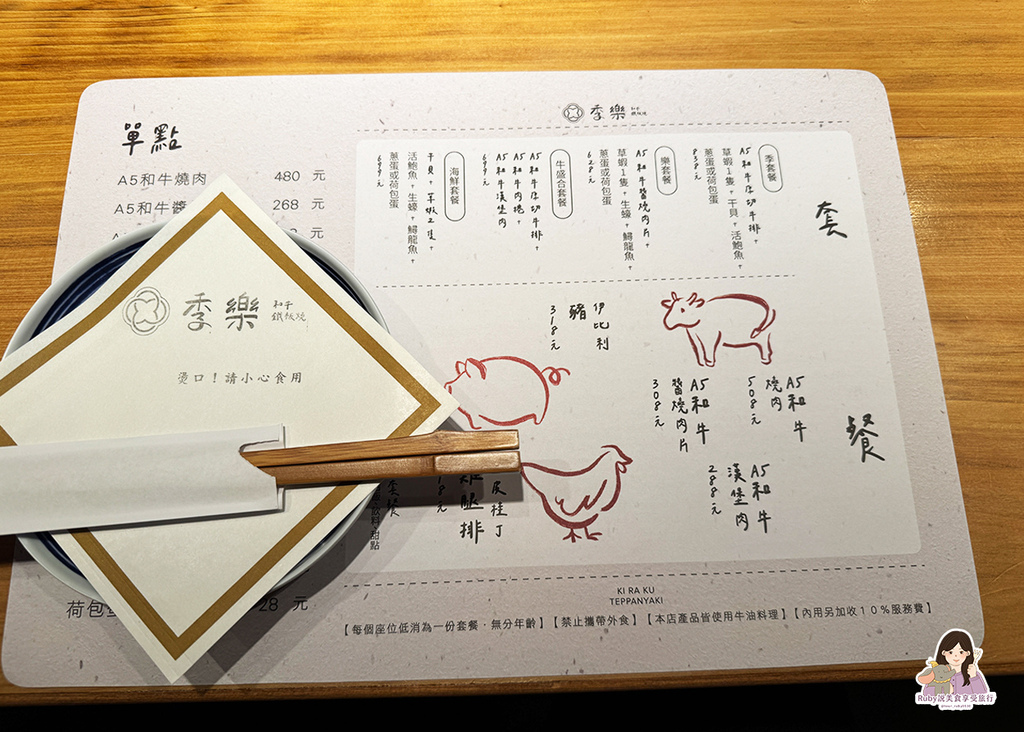 季樂 和牛 鐵板燒
單點
A5和牛燒肉 480 元
A5和牛醬 268 元
荷包 28 元
套
餐
季套餐
A5和牛厚切牛排+
草蝦1隻+干貝+活鮑魚+
蔥蛋或荷包蛋
838元
樂套餐
A5和牛醬燒肉片+
草蝦1隻+生蠔+鱘龍魚+
蔥蛋或荷包蛋
628元
牛盛合套餐
A5和牛厚切牛排+
A5和牛肉捲+
A5和牛漢堡肉
699元
海鮮套餐
干貝+草蝦2隻+
活鮑魚+生蠔+鱘龍魚+
蔥蛋或荷包蛋
699元
A5和牛
燒肉
508元
A5和牛
醬燒肉片
308元
A5和牛
漢堡肉
288元
伊比利
豬
318元
皮桂丁
雞腿排
18元
套餐
飲料+甜點
季樂 和牛 鐵板燒
燙口！請小心食用
KI RA KU
TEPPANYAKI
【每個座位低消為一份套餐．無分年齡】【禁止攜帶外食】【本店產品皆使用牛油料理】【內用另加收10%服務費】
Ruby說美食享受旅行